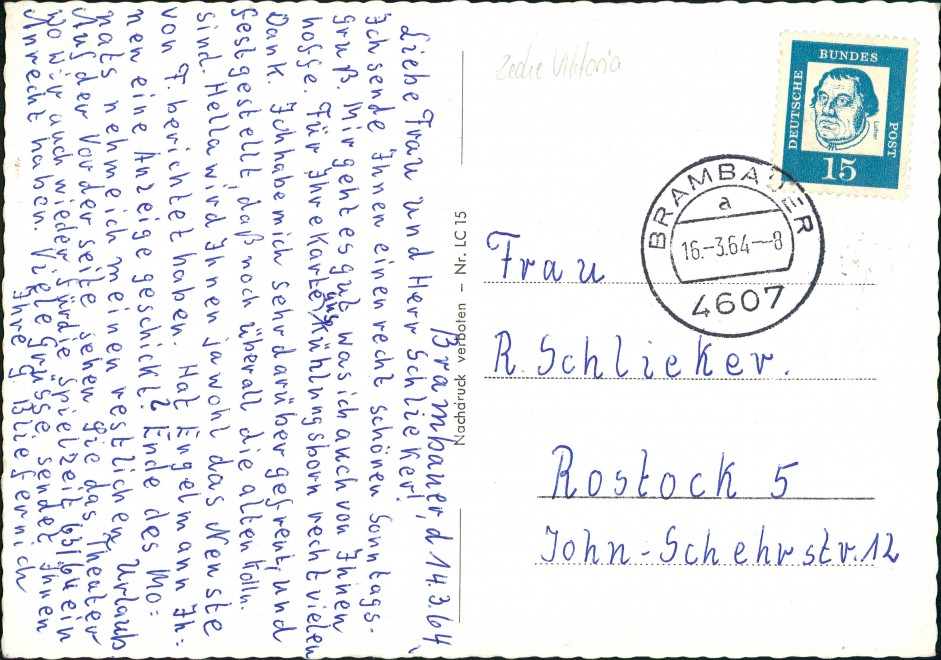 Brambauer, d 14.3.64.
Liebe Frau und Herr Schlieker!
Ich sende Ihnen einen recht schönen Sonntags-
gruß. Mir geht es gut, was ich auch von Ihnen
hoffe. Für Ihre Karte aus Kühlungsborn recht vielen
Dank. Ich habe mich sehr darüber gefreut, und
festgestellt, daß noch überall die alten Kolln.
sind. Hella wird Ihnen ja wohl das Neuste
von F. berichtet haben. Hat Engelmann Ih-
nen eine Anzeige geschickt? Ende des Mo=
nats nehme ich meinen restlichen Urlaub.
Auf der Vorderseite sehen Sie das Theater
wo wir auch wieder für die Spielzeit 63/64 ein
Anrecht haben. Viele Grüsse sendet Ihnen
Ihre G. Bliefernich
Nachdruck verboten – Nr. LC 15
Zeche Viktoria
DEUTSCHE
BUNDES
POST
Luther
15
BRAMBAUER
a
16.-3.64--8
4607
Frau
R. Schlieker.
Rostock 5
John-Schehrstr. 12